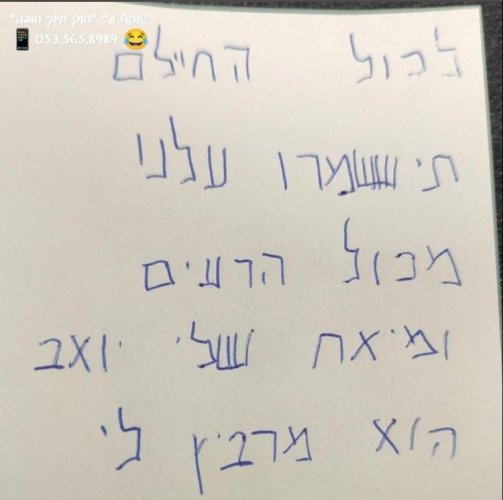 שותף ע"י "חוק חיוך חובה"
053.565.8989
לכול החילם
תישמרו עלנו
מכול הרעים
ומיאח שלי יואב
הוא מרביץ לי